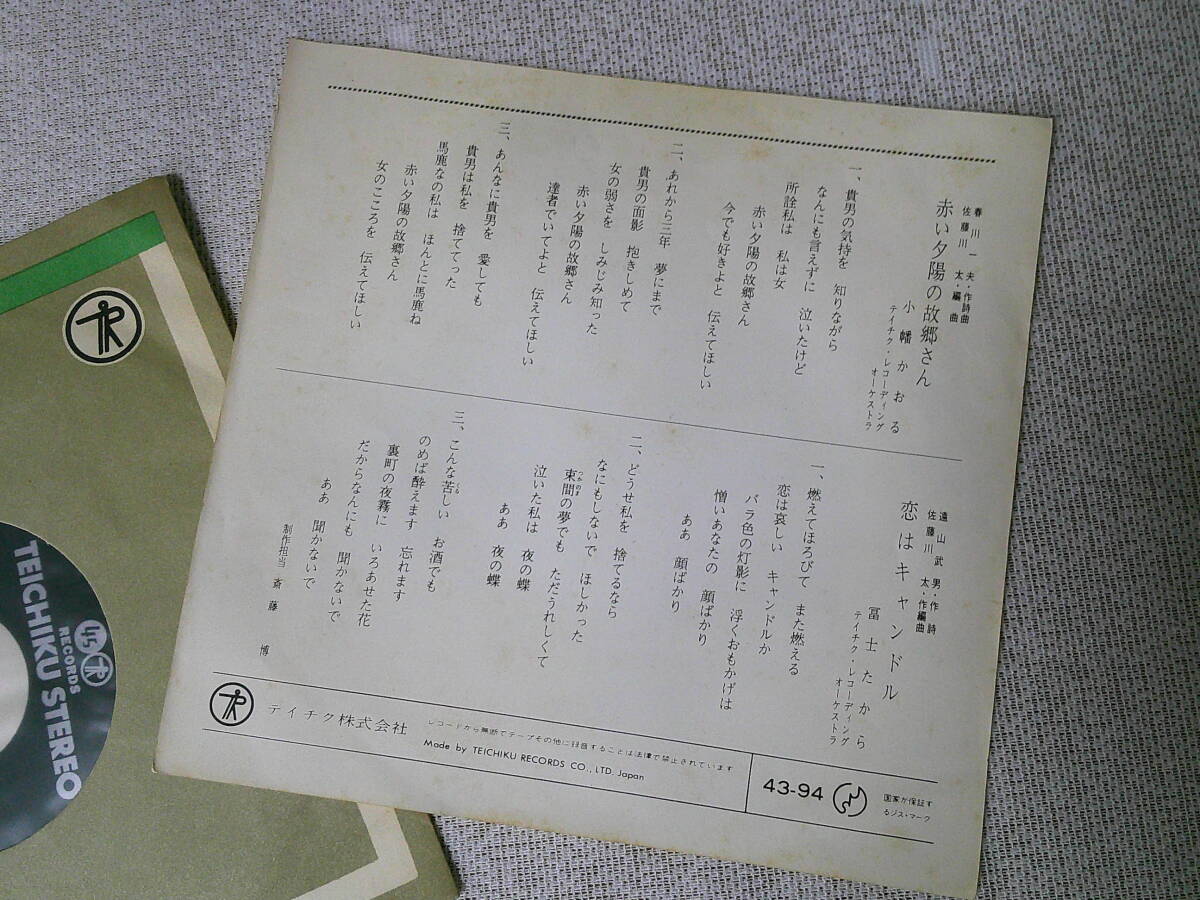 春川一夫・作詩曲
佐藤川 太・編曲
赤い夕陽の故郷さん
小幡かおる
テイチク・レコーディング
オーケストラ
一、貴男の気持を 知りながら
なんにも言えずに 泣いたけど
所詮私は 私は女
赤い夕陽の故郷さん
今でも好きよと 伝えてほしい
二、あれから三年 夢にまで
貴男の面影 抱きしめて
女の弱さを しみじみ知った
赤い夕陽の故郷さん
達者でいてよと 伝えてほしい
三、あんなに貴男を 愛しても
貴男は私を 捨ててった
馬鹿なの私は ほんとに馬鹿ね
赤い夕陽の故郷さん
女のこころを 伝えてほしい
遠山武男・作詩
佐藤川 太・作編曲
恋はキャンドル
冨士たから
テイチク・レコーディング
オーケストラ
一、燃えてほろびて また燃える
恋は哀しい キャンドルか
バラ色の灯影に 浮くおもかげは
憎いあなたの 顔ばかり
ああ 顔ばかり
二、どうせ私を 捨てるなら
なにもしないで ほしかった
束間の夢でも ただうれしくて
つかのま
泣いた私は 夜の蝶
ああ 夜の蝶
三、こんな苦しい お酒でも
くる
のめば酔えます 忘れます
裏町の夜霧に いろあせた花
だからなんにも 聞かないで
ああ 聞かないで
制作担当 斎藤 博
テイチク株式会社
レコードから無断でテープその他に録音することは法律で禁止されています
Made by TEICHIKU RECORDS CO., LTD. Japan
43-94
国家が保証す
るジス・マーク
45
RECORDS
TEICHIKU STEREO